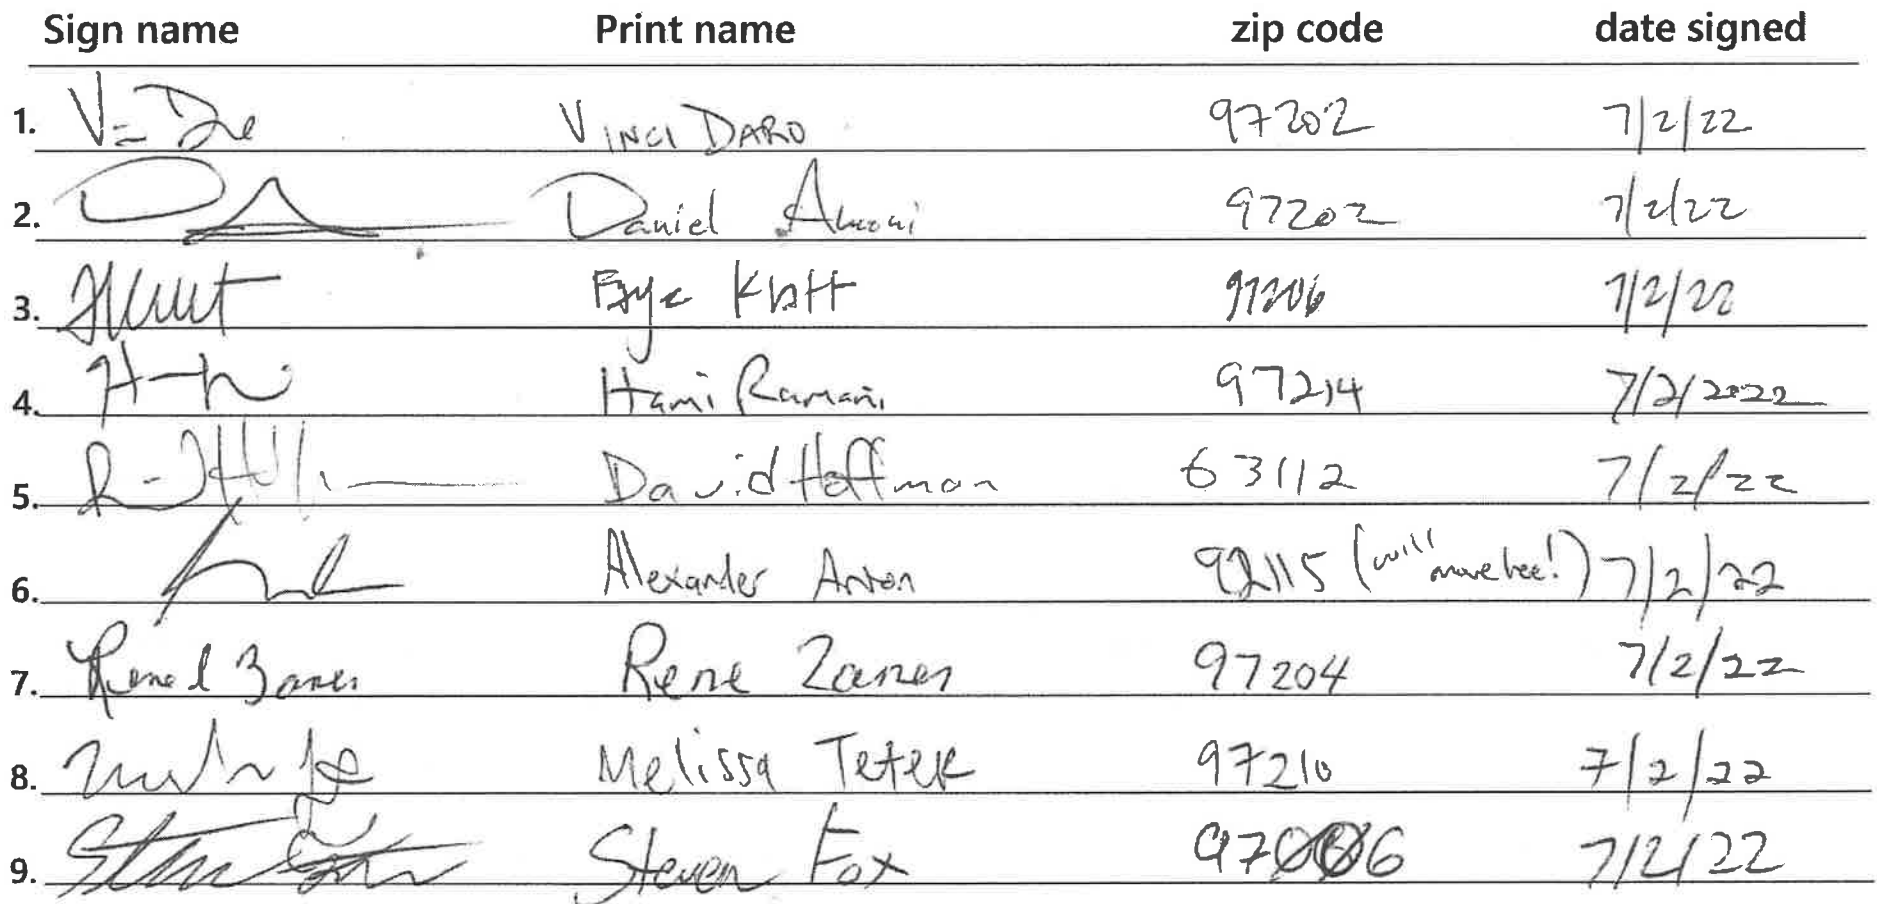 Sign name Print name zip code date signed
1. VINCI DARO 97202 7/2/22
2. Daniel 97202 7/2/22
3. Faye 97206 7/2/22
4. Hami Ramani 97214 7/2/2022
5. David Hoffman 63112 7/2/22
6. Alexander Anton 92115 (will move here!) 7/2/22
7. Rene Zanes 97204 7/2/22
8. Melissa Tetek 97210 7/2/22
9. Steven Fox 97006 7/2/22